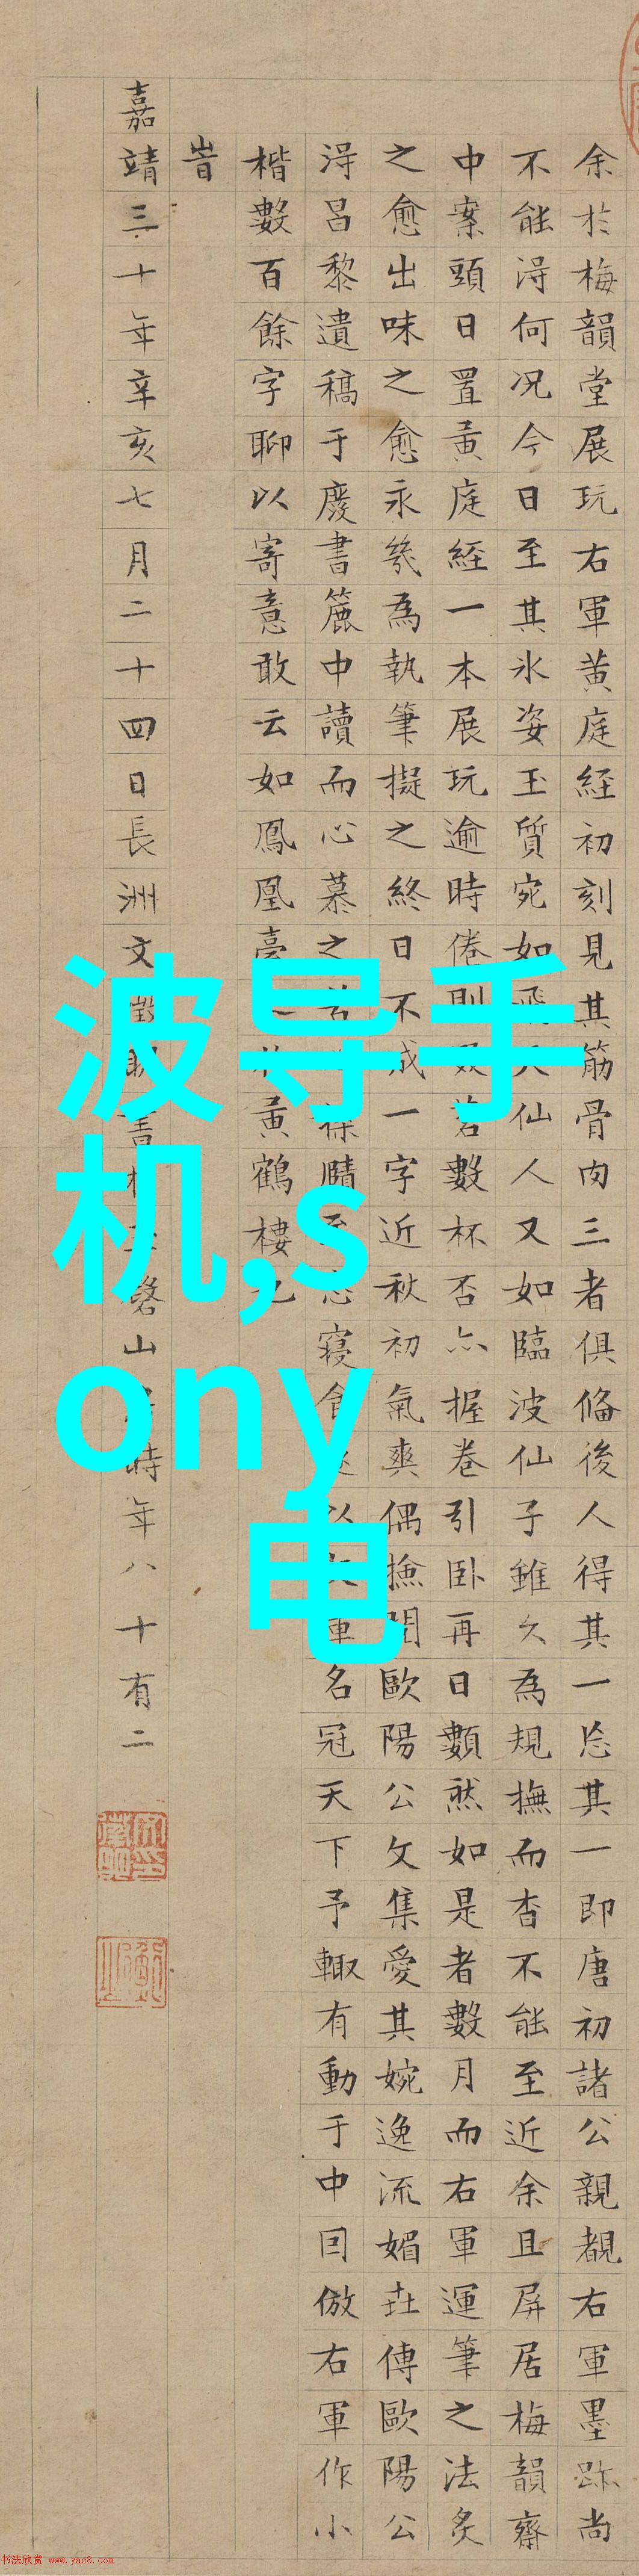 余於梅韻堂展玩右軍黃庭經初刻見其筋骨肉三者俱備後人得其一忘其一即唐初諸公親覩右軍墨跡尚
不能淂何况今日至其氷姿玉質宛如飛天仙人又如臨波仙子雖久為規撫而杳不能至近余且屏居梅韻齋
中案頭日置黃庭經一本展玩逾時倦則啜茗數杯否亦握卷引卧再日數然如是者數月而右軍運筆之法炙
之愈出味之愈永幾為執筆擬之終日不成一字近秋初氣爽偶撿閱歐陽公文集愛其婉逸流媚
傳歐陽公
淂昌黎遺稿于廢書簏中讀而心慕之苦
寢食
以
軍名冠天下予輙有動于中因倣右軍作小
楷數百餘字聊以寄意敢云如鳳凰臺
黃鶴樓
嘉靖三十年辛亥七月二十四日長洲文徵明書於玉磬山房時年八十有二
波导手
机,s
ony
电
书法欣赏 www.yac8.com